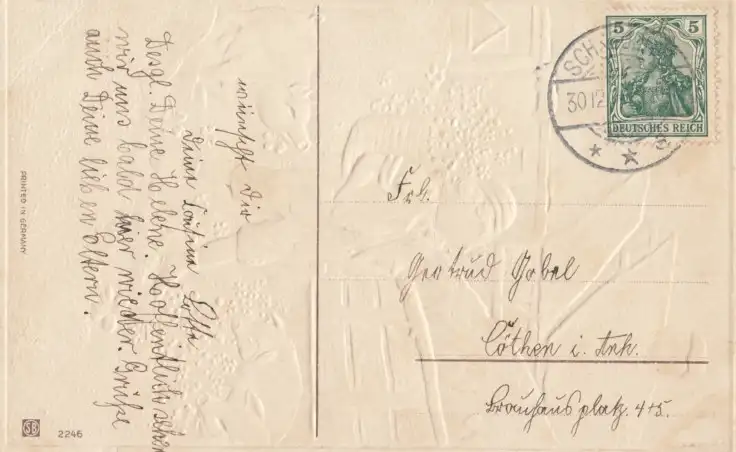 wünscht Dir
Deine Cousine
Desgl. Deine Helene. Hoffentlich sehen
wir uns bald hier wieder. Grüße
auch Deine lieben Eltern.
PRINTED IN GERMANY
SB
2246
5 5
DEUTSCHES REICH
SCH
30 12
Frl.
Gertrud Gobel
Cöthen i. Anh.
Brauhausplatz. 4+5.